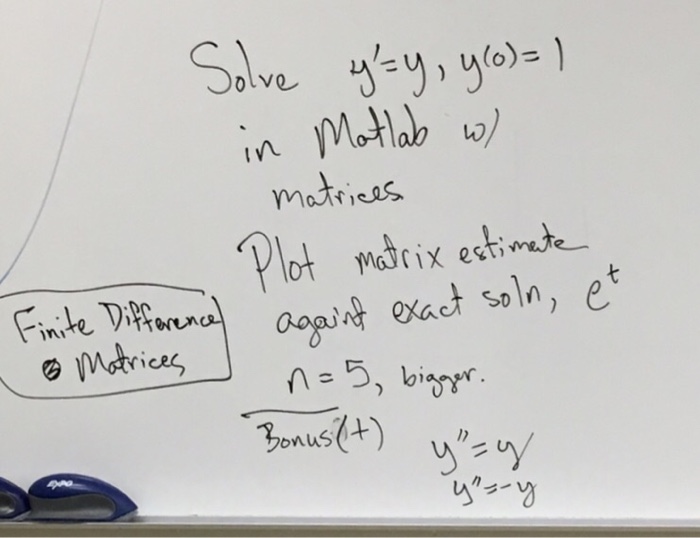 Solve y'=y, y(0)=1
in Matlab w/
matrices
Plot matrix estimate
against exact soln, e^t
Finite Difference
Matrices
n=5, bigger.
Bonus(+)
y''=y
y''=-y
EXPO